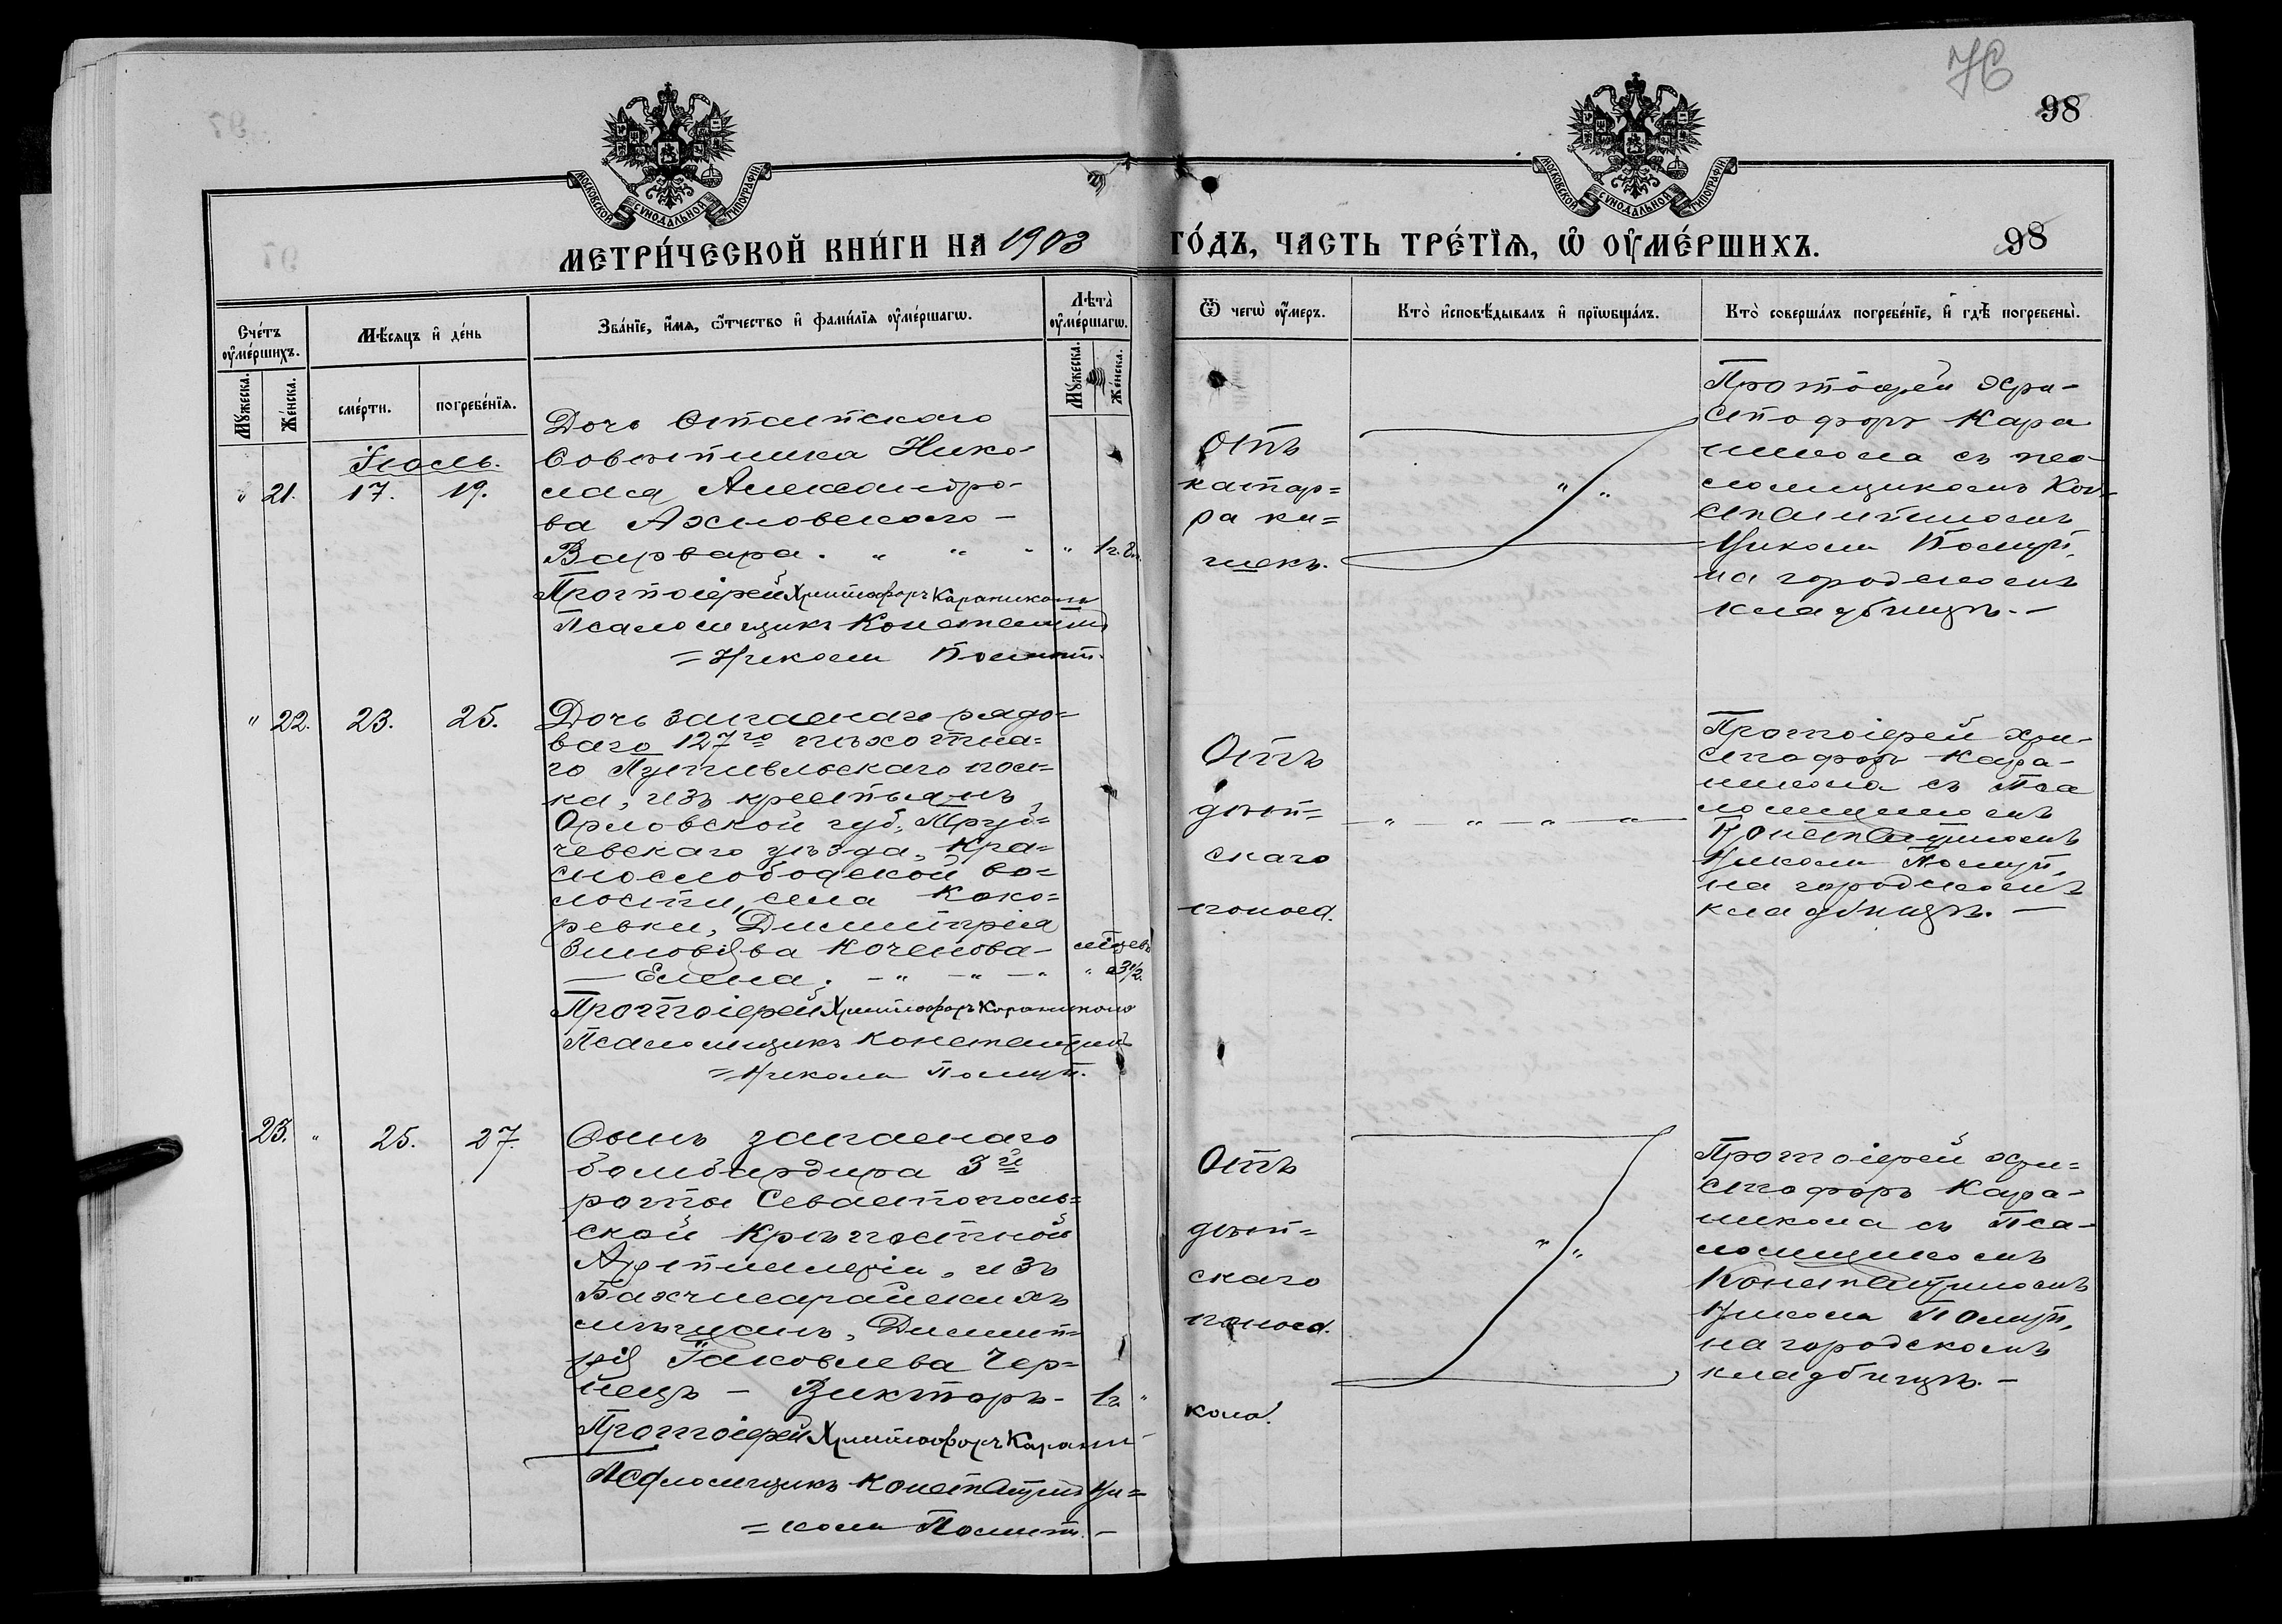 98
МОСКОВСКОЙ СѴНОДАЛЬНОЙ ТИПОГРАФІИ
МОСКОВСКОЙ СѴНОДАЛЬНОЙ ТИПОГРАФІИ
МЕТРИ́ЧЕСКОЙ КНИ́ГИ НА 1903 ГО́ДЪ, ЧАСТЬ ТРЕ́ТЇѦ, Ѡ҆ ОУ҆МЕ́РШИХЪ.
98
Сче́тъ оу҆ме́ршихъ.
Мѣ́сяцъ и҆ де́нь
Зва́нїе, и҆́мя, ѻ҆́тчество и҆ фами́лїя оу҆ме́ршагѡ.
Лѣ́та оу҆ме́ршагѡ.
Ѿ чегѡ̀ оу҆́меръ.
Кто̀ и҆сповѣ́дывалъ и҆ прїѡбща́лъ.
Кто̀ соверша́лъ погребе́нїе, и҆ гдѣ̀ погребены̀.
Му́жеска.
Же́нска.
сме́рти.
погребе́нїя.
Му́жеска.
Же́нска.
Іюль.
" 21. 17. 19.
Дочь Статскаго
Совѣтника Нико-
лая Александро-
ва Ахновскаго -
Варвара. " " " " 1г.
Протоіерей Христофоръ Караникола
Псаломщикъ Константинъ
= Никола Полит.
Отъ
катар=
ра ки=
шекъ.
" "
Протоіерей Хри-
стофоръ Кара
никола съ пса-
ломщикомъ Кон-
стантиномъ
Никола Полит.
на городскомъ
кладбищѣ. -
" 22. 23. 25.
Дочь запаснаго рядо-
ваго 127го пѣхотна=
го Путивльскаго пол-
ка, изъ крестьянъ
Орловской губ., Труб-
чевскаго уѣзда, Кра-
снослободской во=
лости, села Коко=
ревки, Димитрія
Зиновьева Коченова -
мѣсяцевъ
- Елена. - " - " - " " 3½.
Протоіерей Христофоръ Караникола
Псаломщикъ Константинъ
= Никола Полит.
Отъ
дѣт=
скаго
поноса.
- " - " - " - " -
Протоіерей Хри-
стофоръ Кара-
никола съ Пса
ломщикомъ
Константиномъ
Никола Полит.
на городскомъ
кладбищѣ. -
23. " 25. 27.
Сынъ запаснаго
бомбардира 3й
роты Севастополь=
ской Крѣпостной
Артиллеріи, изъ
Бахчисарайскихъ
мѣщанъ, Димит-
рія Іаковлева Чер=
нецъ - Викторъ - 1г. "
Протоіерей Христофоръ Карани-
кола.
Псаломщикъ Константинъ Ни=
= кола Полит. -
Отъ
дѣт=
скаго
поноса.
" "
Протоіерей Хри=
стофоръ Кара-
никола съ Пса-
ломщикомъ
Константиномъ
Никола Полит.
на городскомъ
кладбищѣ. -